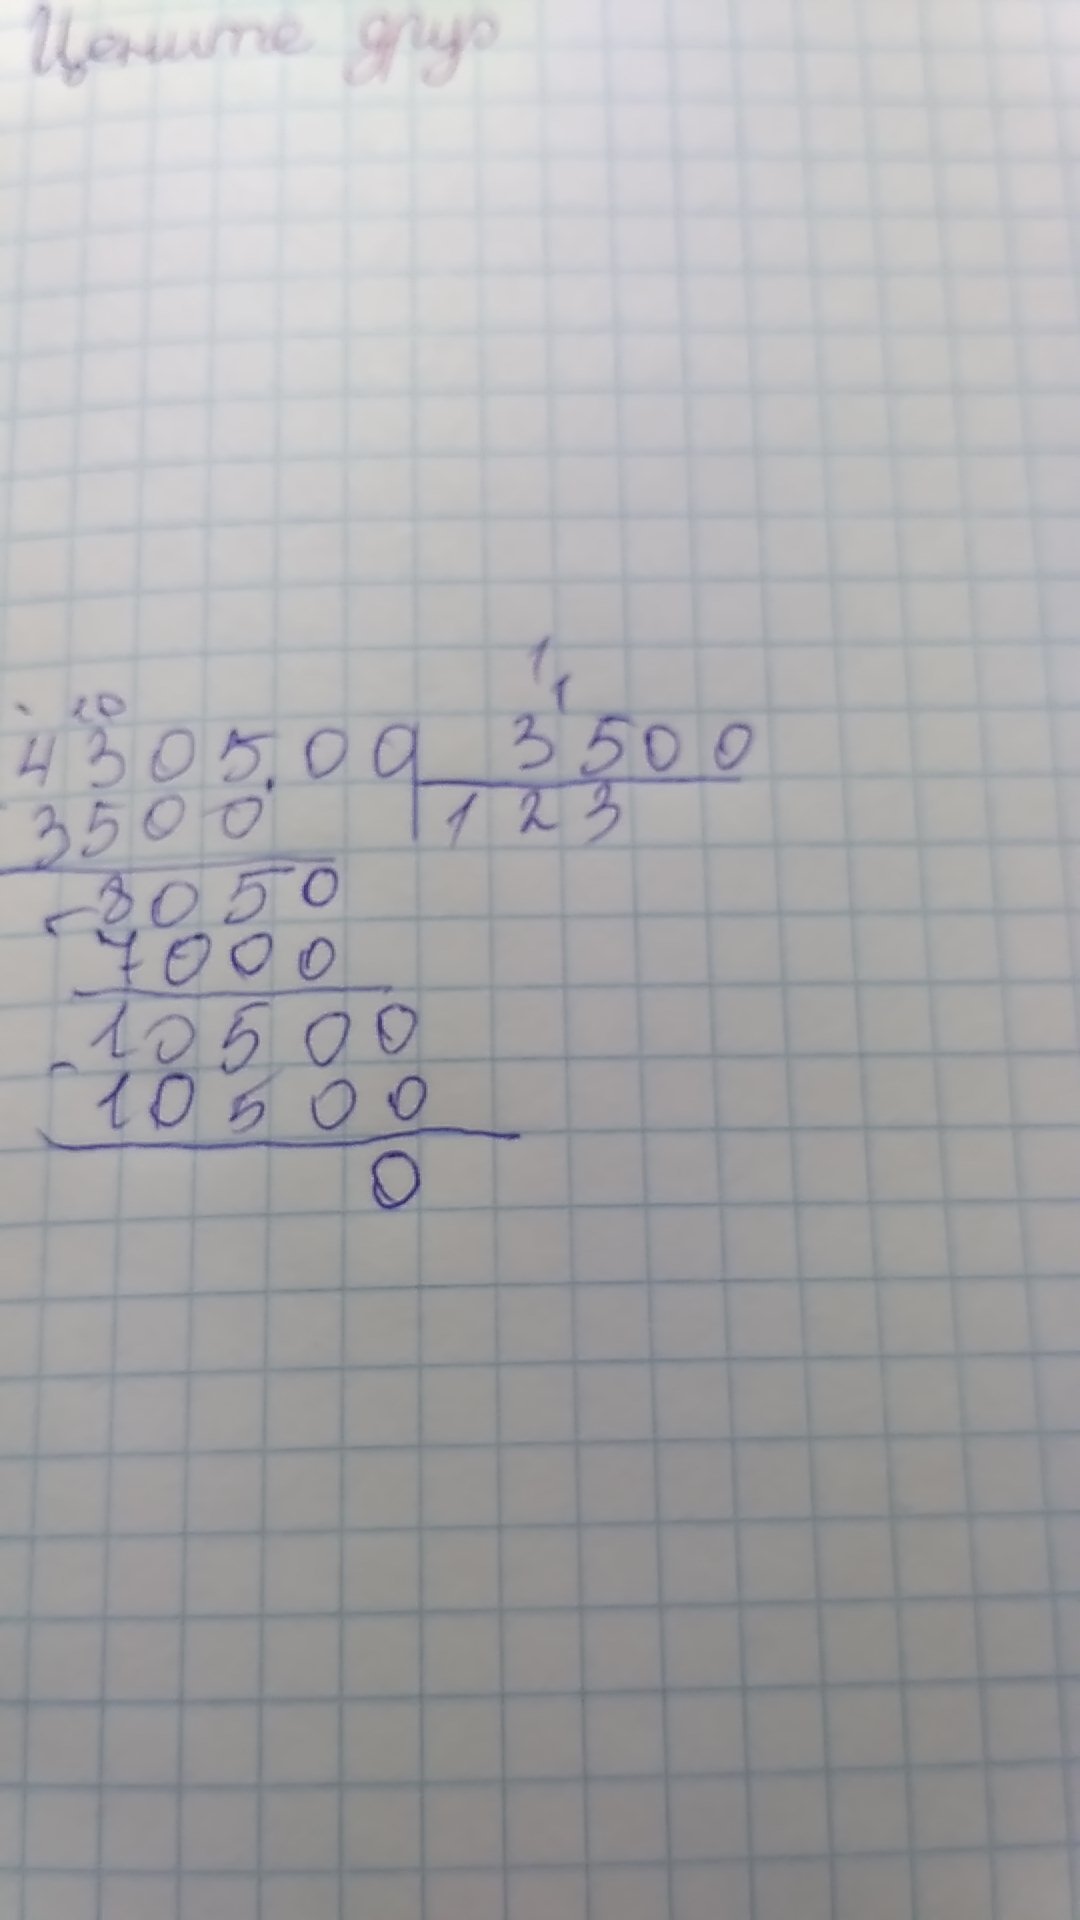 Цените друг
10
1
1
430500 3500
3500 123
- 8050
7000
- 10500
10500
0